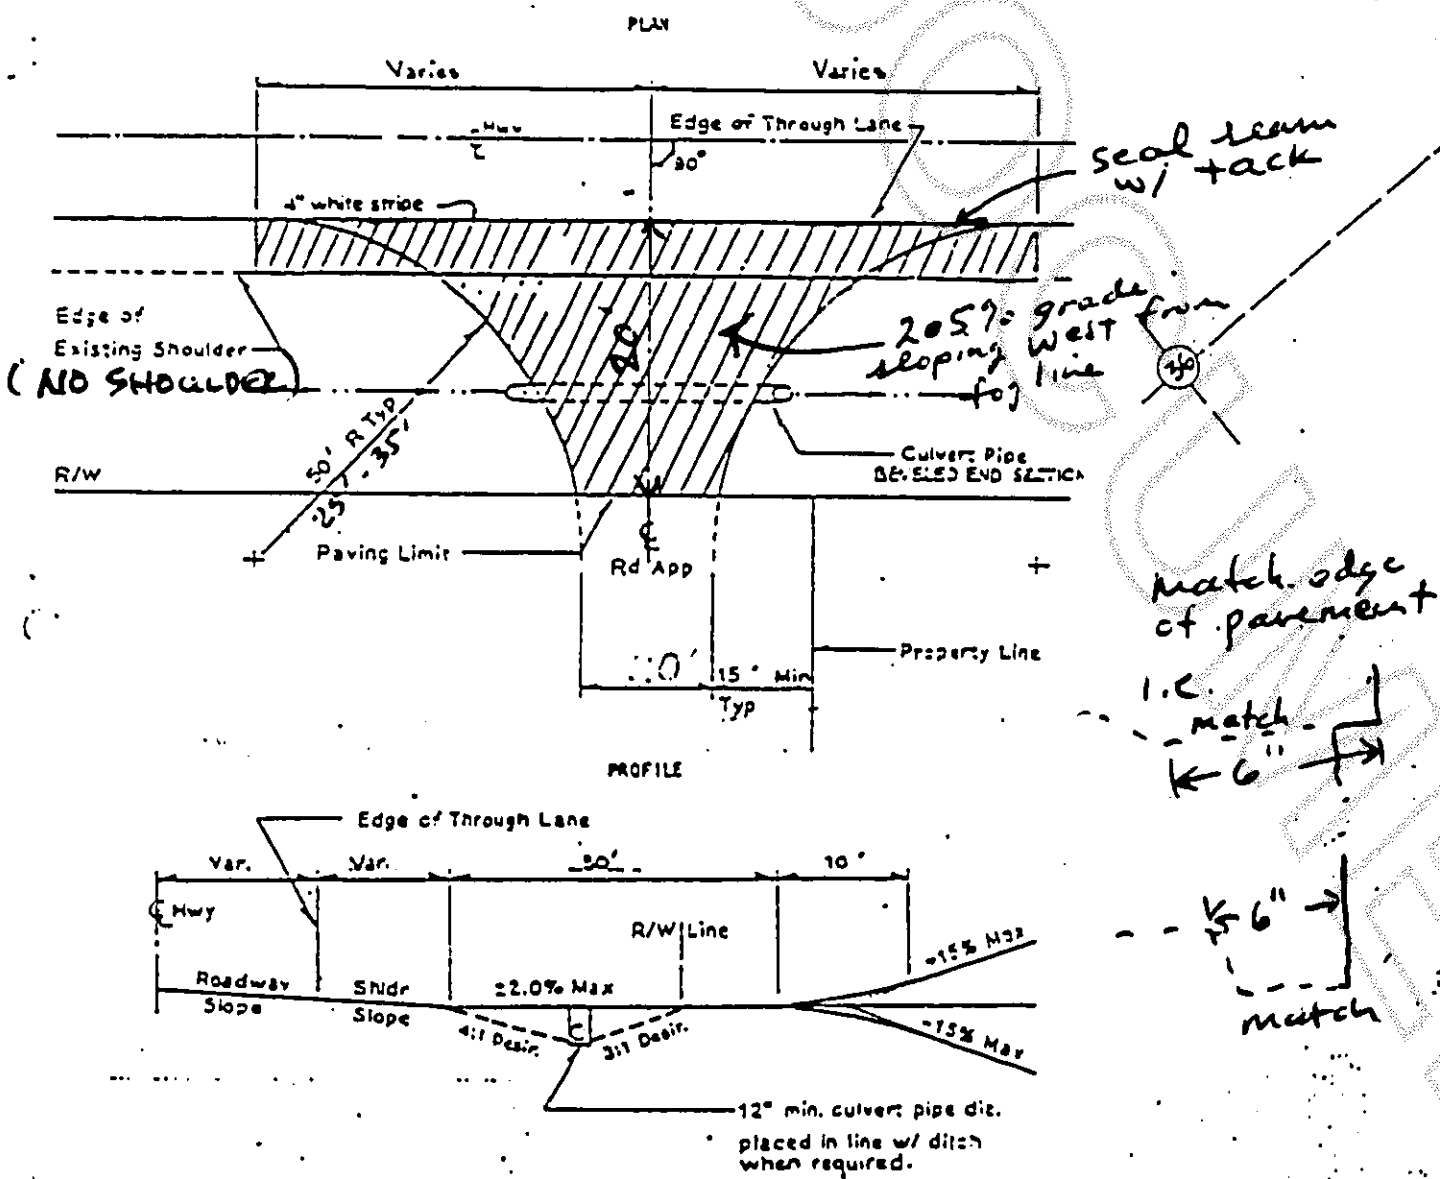 PLAN
Varies
Varies
Hwy
Edge of Through Lane
90°
seal seam
w/ tack
4" white stripe
Edge of
Existing Shoulder
(NO SHOULDER)
20
2.5% grade
sloping west from
fog line
50' R Typ
25' - 35'
Culvert Pipe
BEVELED END SECTION
R/W
Paving Limit
Rd App
match edge
of pavement
Property Line
15' Min
Typ
i.e.
match
6"
PROFILE
Edge of Through Lane
Var.
Var.
10'
Hwy
R/W Line
6"
match
Roadway
Slope
Shldr
Slope
±2.0% Max
-15% Max
4:1 Desir.
C
3:1 Desir.
-15% Max
12" min. culvert pipe dia.
placed in line w/ ditch
when required.